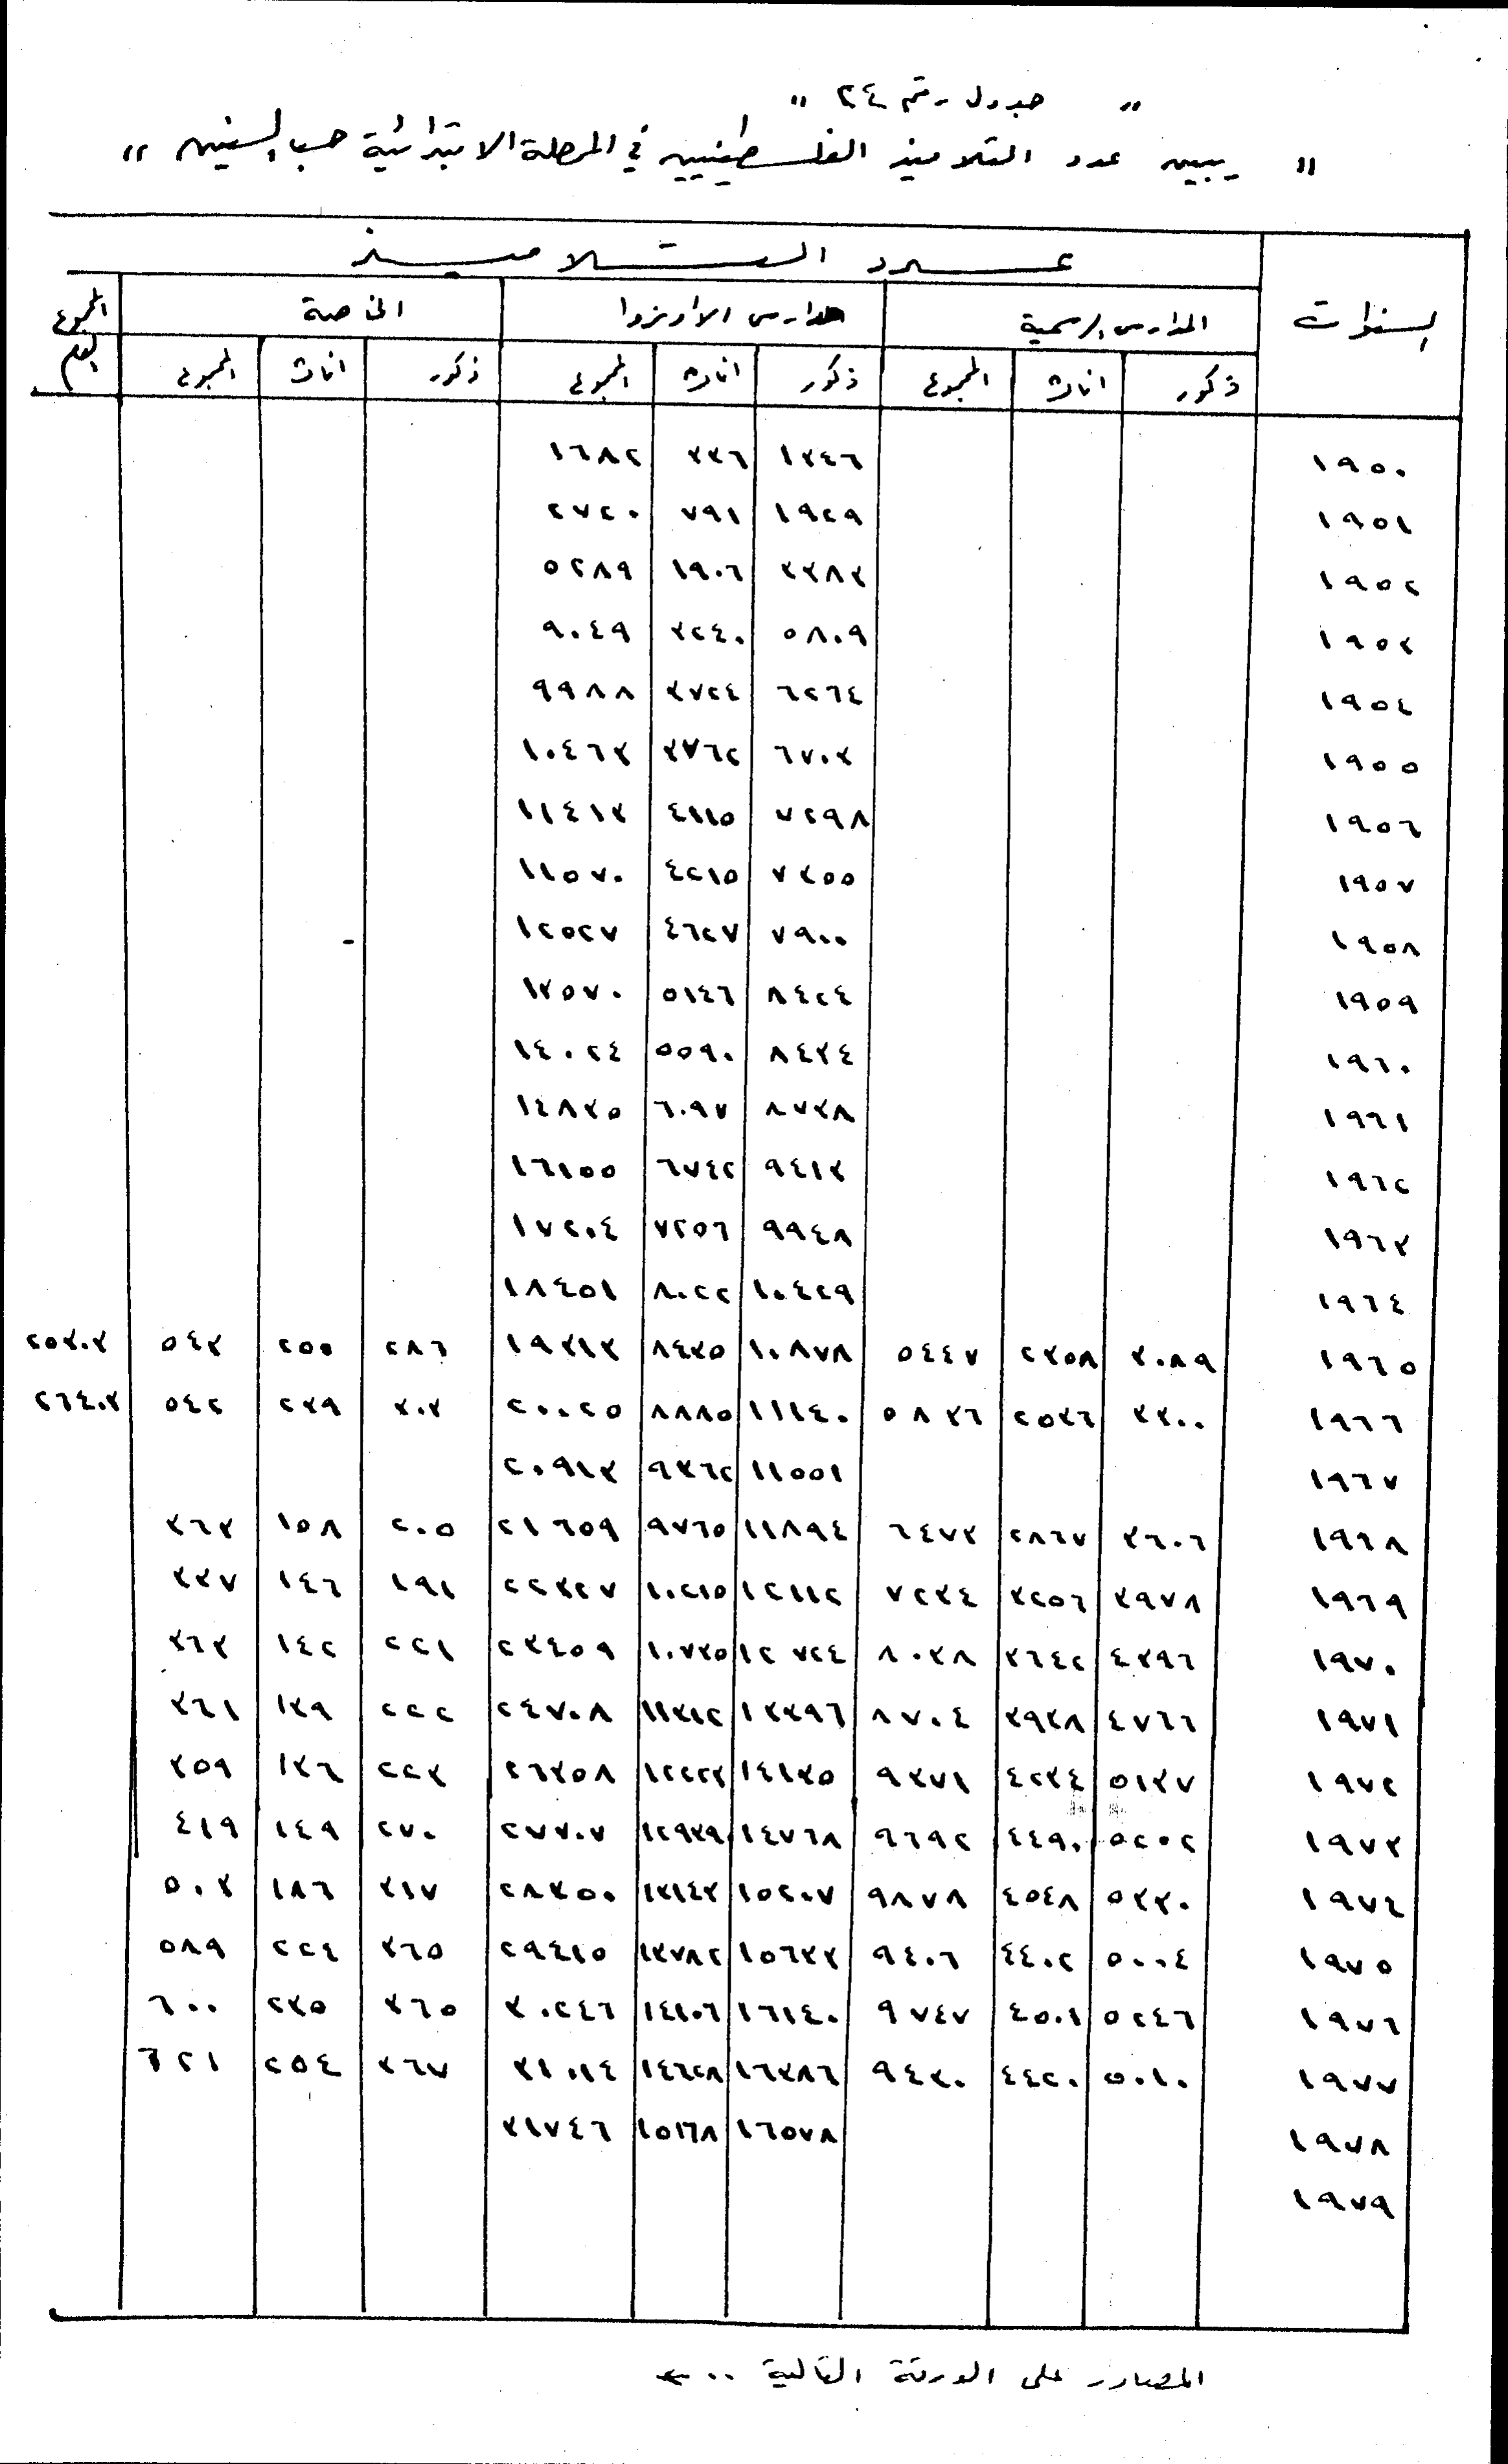 " جدول رقم ٢٤ "
" يبين عدد التلاميذ الفلسطينيين في المرحلة الابتدائية حسب السنين "
السنوات عدد التلاميذ
المدارس الرسمية مدارس الاونروا الخاصة المجموع العام
ذكور اناث المجموع ذكور اناث المجموع ذكور اناث المجموع
١٩٥٠ ١٣٤٦ ٣٣٦ ١٦٨٢
١٩٥١ ١٩٢٩ ٧٩١ ٢٧٢٠
١٩٥٢ ٣٣٨٣ ١٩٠٦ ٥٢٨٩
١٩٥٣ ٥٨٠٩ ٣٢٤٠ ٩٠٤٩
١٩٥٤ ٦٢٦٤ ٣٧٢٤ ٩٩٨٨
١٩٥٥ ٦٧٠٣ ٣٧٦٢ ١٠٤٦٣
١٩٥٦ ٧٢٩٨ ٤١١٥ ١١٤١٣
١٩٥٧ ٧٣٥٥ ٤٢١٥ ١١٥٧٠
١٩٥٨ ٧٩٠٠ ٤٦٢٧ ١٢٥٢٧
١٩٥٩ ٨٤٢٤ ٥١٤٦ ١٣٥٧٠
١٩٦٠ ٨٤٣٤ ٥٥٩٠ ١٤٠٢٤
١٩٦١ ٨٧٣٨ ٦٠٩٧ ١٤٨٣٥
١٩٦٢ ٩٤١٣ ٦٧٤٢ ١٦١٥٥
١٩٦٣ ٩٩٤٨ ٧٢٥٦ ١٧٢٠٤
١٩٦٤ ١٠٤٢٩ ٨٠٢٢ ١٨٤٥١
١٩٦٥ ٣٠٨٩ ٢٣٥٨ ٥٤٤٧ ١٠٨٧٨ ٨٤٣٥ ١٩٣١٣ ٢٨٦ ٢٥٥ ٥٤٣ ٢٥٣٠٣
١٩٦٦ ٣٣٠٠ ٢٥٣٦ ٥٨٣٦ ١١١٤٠ ٨٨٨٥ ٢٠٠٢٥ ٣٠٣ ٢٣٩ ٥٤٢ ٢٦٤٠٣
١٩٦٧ ١١٥٥١ ٩٣٦٢ ٢٠٩١٣
١٩٦٨ ٣٦٠٦ ٢٨٦٧ ٦٤٧٣ ١١٨٩٤ ٩٧٦٥ ٢١٦٥٩ ٢٠٥ ١٥٨ ٣٦٣
١٩٦٩ ٣٩٧٨ ٣٢٥٦ ٧٢٣٤ ١٢١١٢ ١٠٢١٥ ٢٢٣٢٧ ١٩١ ١٤٦ ٣٣٧
١٩٧٠ ٤٣٩٦ ٣٦٤٢ ٨٠٣٨ ١٢٧٢٤ ١٠٧٣٥ ٢٣٤٥٩ ٢٢١ ١٤٢ ٣٦٣
١٩٧١ ٤٧٦٦ ٣٩٣٨ ٨٧٠٤ ١٣٣٩٦ ١١٣١٢ ٢٤٧٠٨ ٢٢٢ ١٣٩ ٣٦١
١٩٧٢ ٥١٣٧ ٤٢٣٤ ٩٣٧١ ١٤١٣٥ ١٢٢٢٣ ٢٦٣٥٨ ٢٢٣ ١٣٦ ٣٥٩
١٩٧٣ ٥٢٠٢ ٤٤٩٠ ٩٦٩٢ ١٤٧٦٨ ١٢٩٣٩ ٢٧٧٠٧ ٢٧٠ ١٤٩ ٤١٩
١٩٧٤ ٥٣٣٠ ٤٥٤٨ ٩٨٧٨ ١٥٢٠٧ ١٣١٤٣ ٢٨٣٥٠ ٣١٧ ١٨٦ ٥٠٣
١٩٧٥ ٥٠٠٤ ٤٤٠٢ ٩٤٠٦ ١٥٦٣٣ ١٣٧٨٢ ٢٩٤١٥ ٣٦٥ ٢٢٤ ٥٨٩
١٩٧٦ ٥٢٤٦ ٤٥٠١ ٩٧٤٧ ١٦١٤٠ ١٤١٠٦ ٣٠٢٤٦ ٣٦٥ ٢٣٥ ٦٠٠
١٩٧٧ ٥٠١٠ ٤٤٢٠ ٩٤٣٠ ١٦٣٨٦ ١٤٦٢٨ ٣١٠١٤ ٣٦٧ ٢٥٤ ٦٢١
١٩٧٨ ١٦٥٧٨ ١٥١٦٨ ٣١٧٤٦
١٩٧٩
المصادر على الورقة التالية ..←